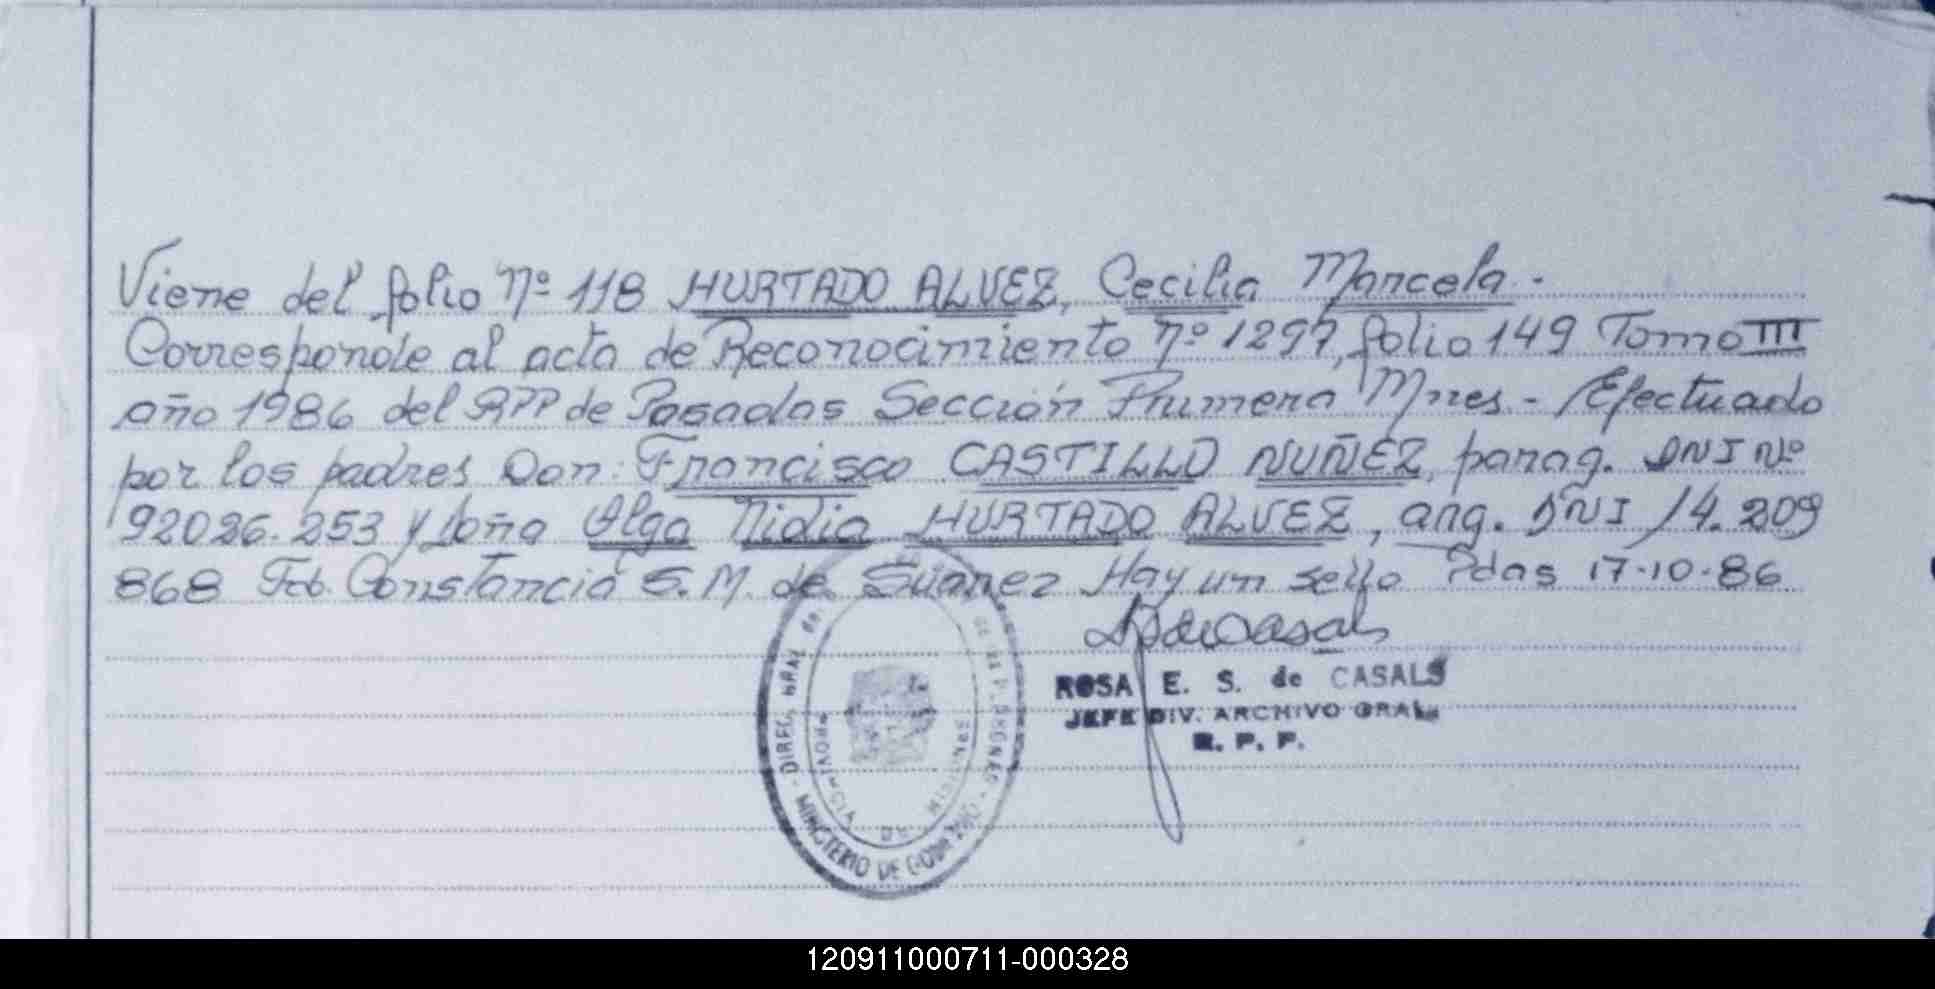 Viene del folio Nº 118 HURTADO ALVEZ, Cecilia Marcela.-
Corresponde al acta de Reconocimiento Nº 1297, folio 149 Tomo III
año 1986 del RPP de Posadas Sección Primera Mnes.- Efectuado
por los padres Don: Francisco CASTILLO NUÑEZ, parag. DNI Nº
92026.253 y doña Olga Nidia HURTADO ALVEZ, arg. DNI 14.209
868 Fdo. Constancia S.M. de Suarez Hay un sello Pdas 17-10-86
ROSA E. S. de CASALS
JEFE DIV. ARCHIVO GRAL.
R. P. P.
DIREC. GRAL de
MINISTERIO DE GOBIERNO
PROVINCIA DE MISIONES
120911000711-000328